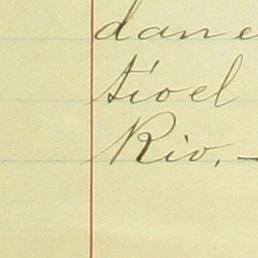 dane
tíoel
Rio. —